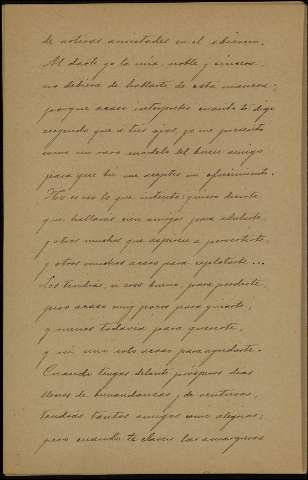 de nobles amistades en el abismo.
Al darte yo la mía, noble y sincera,
no debiera de hablarte de esta manera;
porque acaso interpretes cuanto te digo
creyendo que a tus ojos, yo me presento
como un raro modelo del buen amigo
para que tú me aceptes un ofrecimiento.
No es eso lo que intento: quiero decirte
que hallarás cien amigos para adularte,
y otros muchos que aspiren a pervertirte,
y otros muchos acaso para explotarte...
Los tendrás, si eres bueno, para perderte,
pero acaso muy pocos para guiarte,
y menos todavía para quererte,
y ni uno solo acaso para ayudarte.
Cuando tengas delante prósperos días
llenos de bienandanzas y de venturas,
tendrás tantos amigos como alegrías;
pero cuando te claven las amarguras